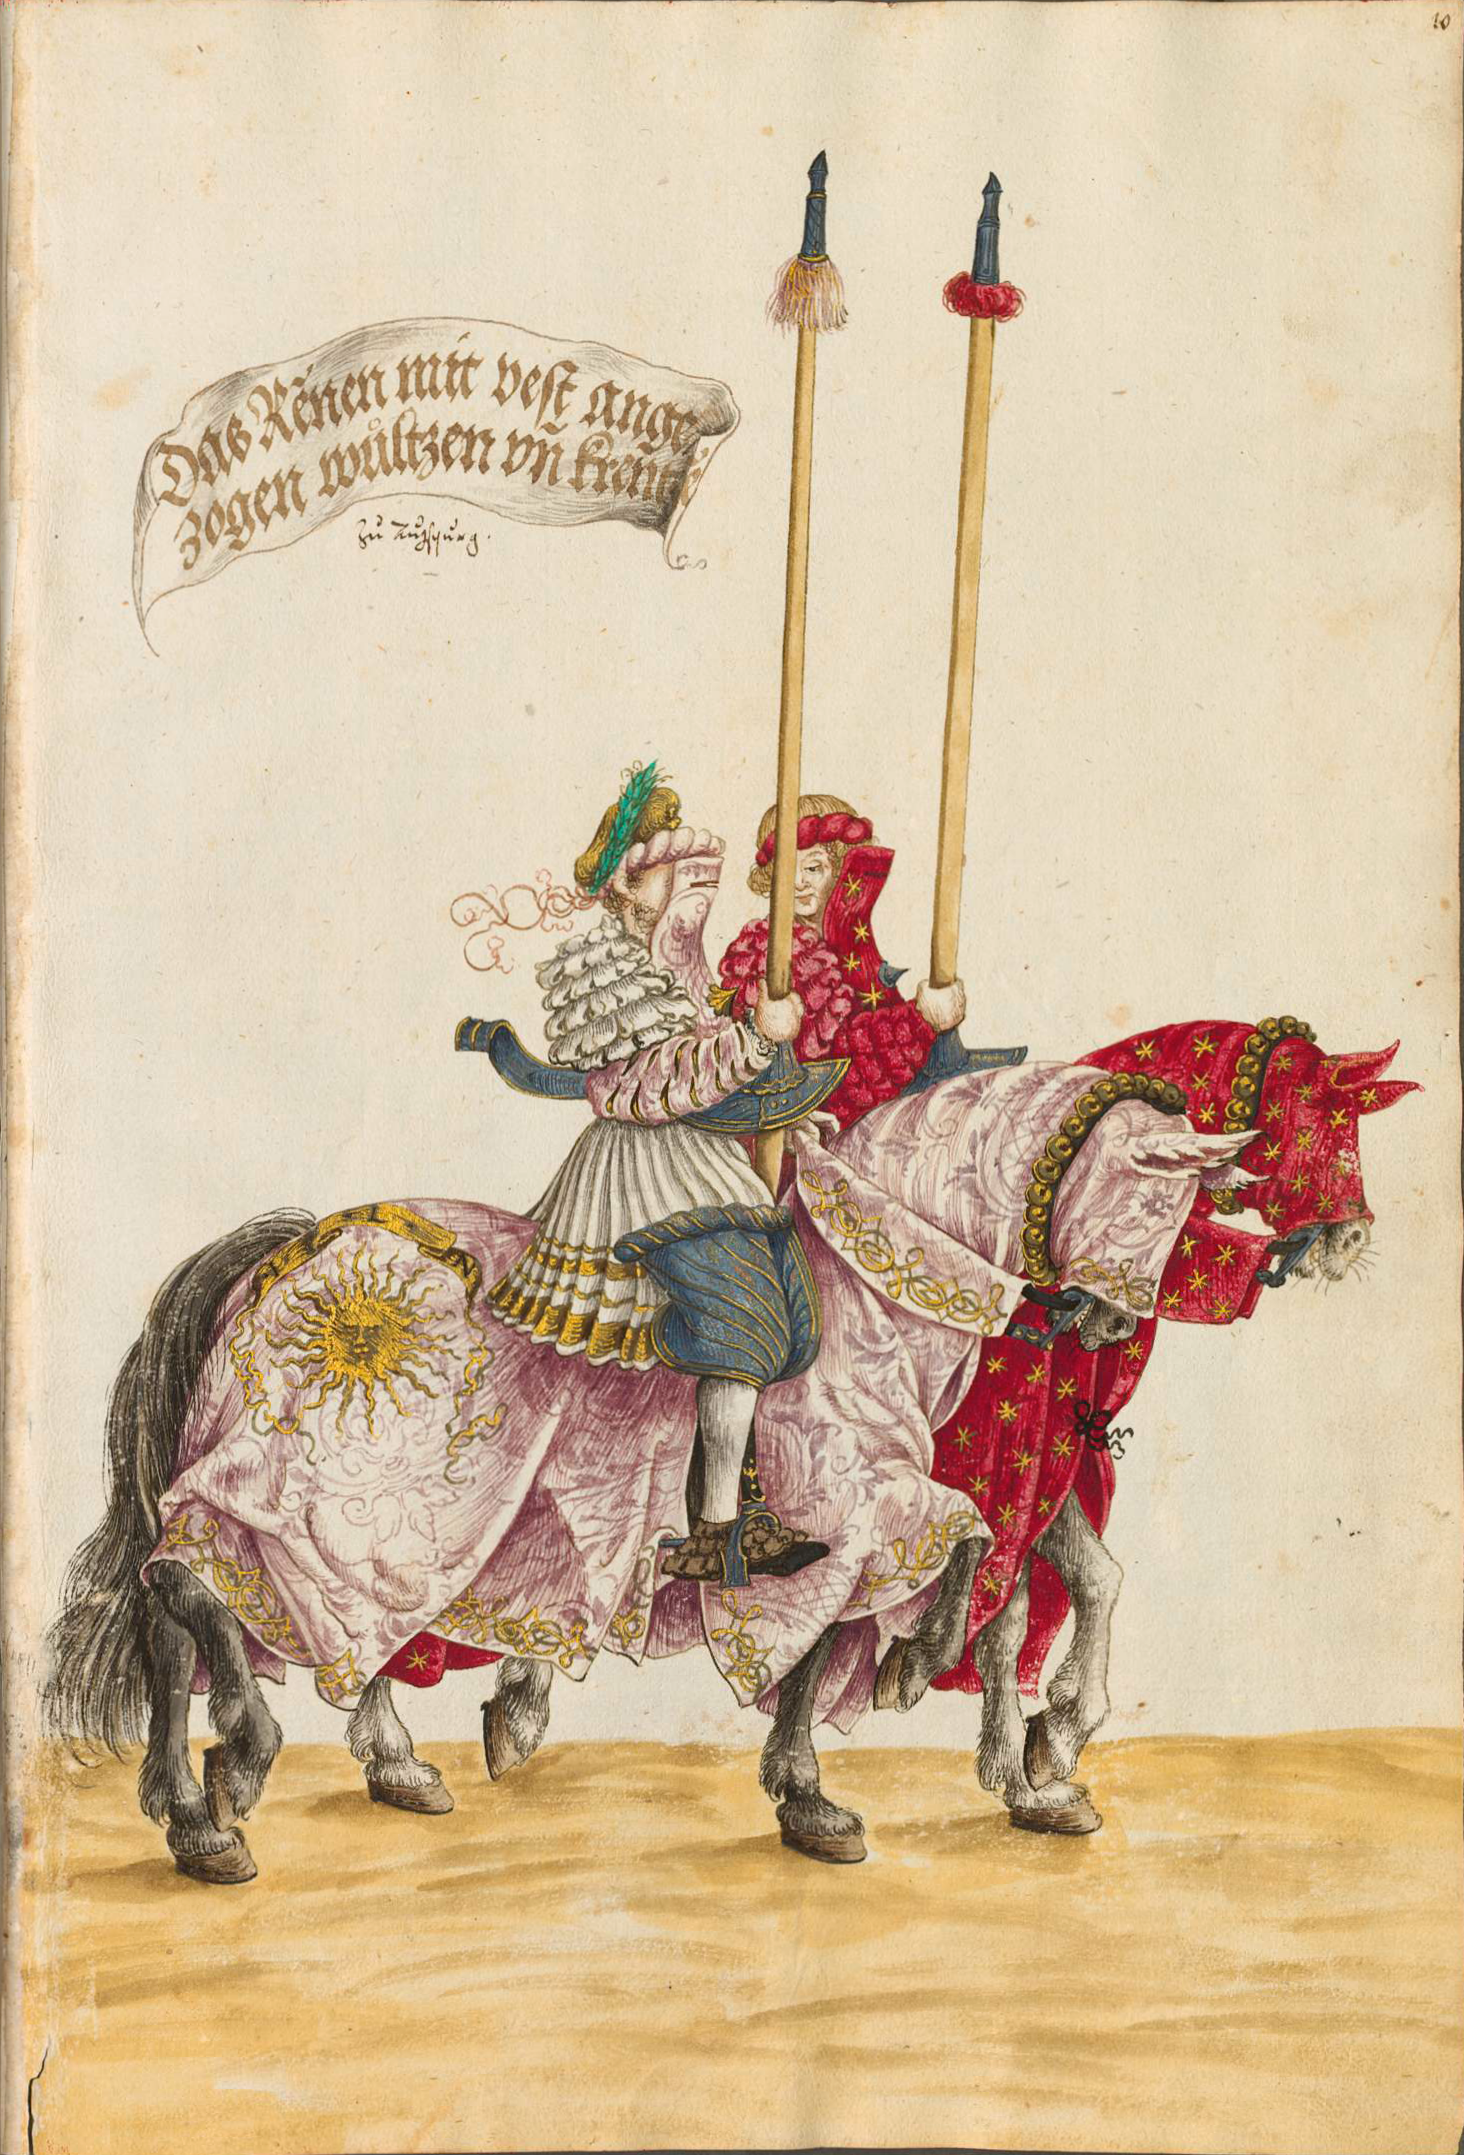 10
Das Rēnen mit vest ange
zogen wůltzen vn̄ krentz
zu Augspurg.